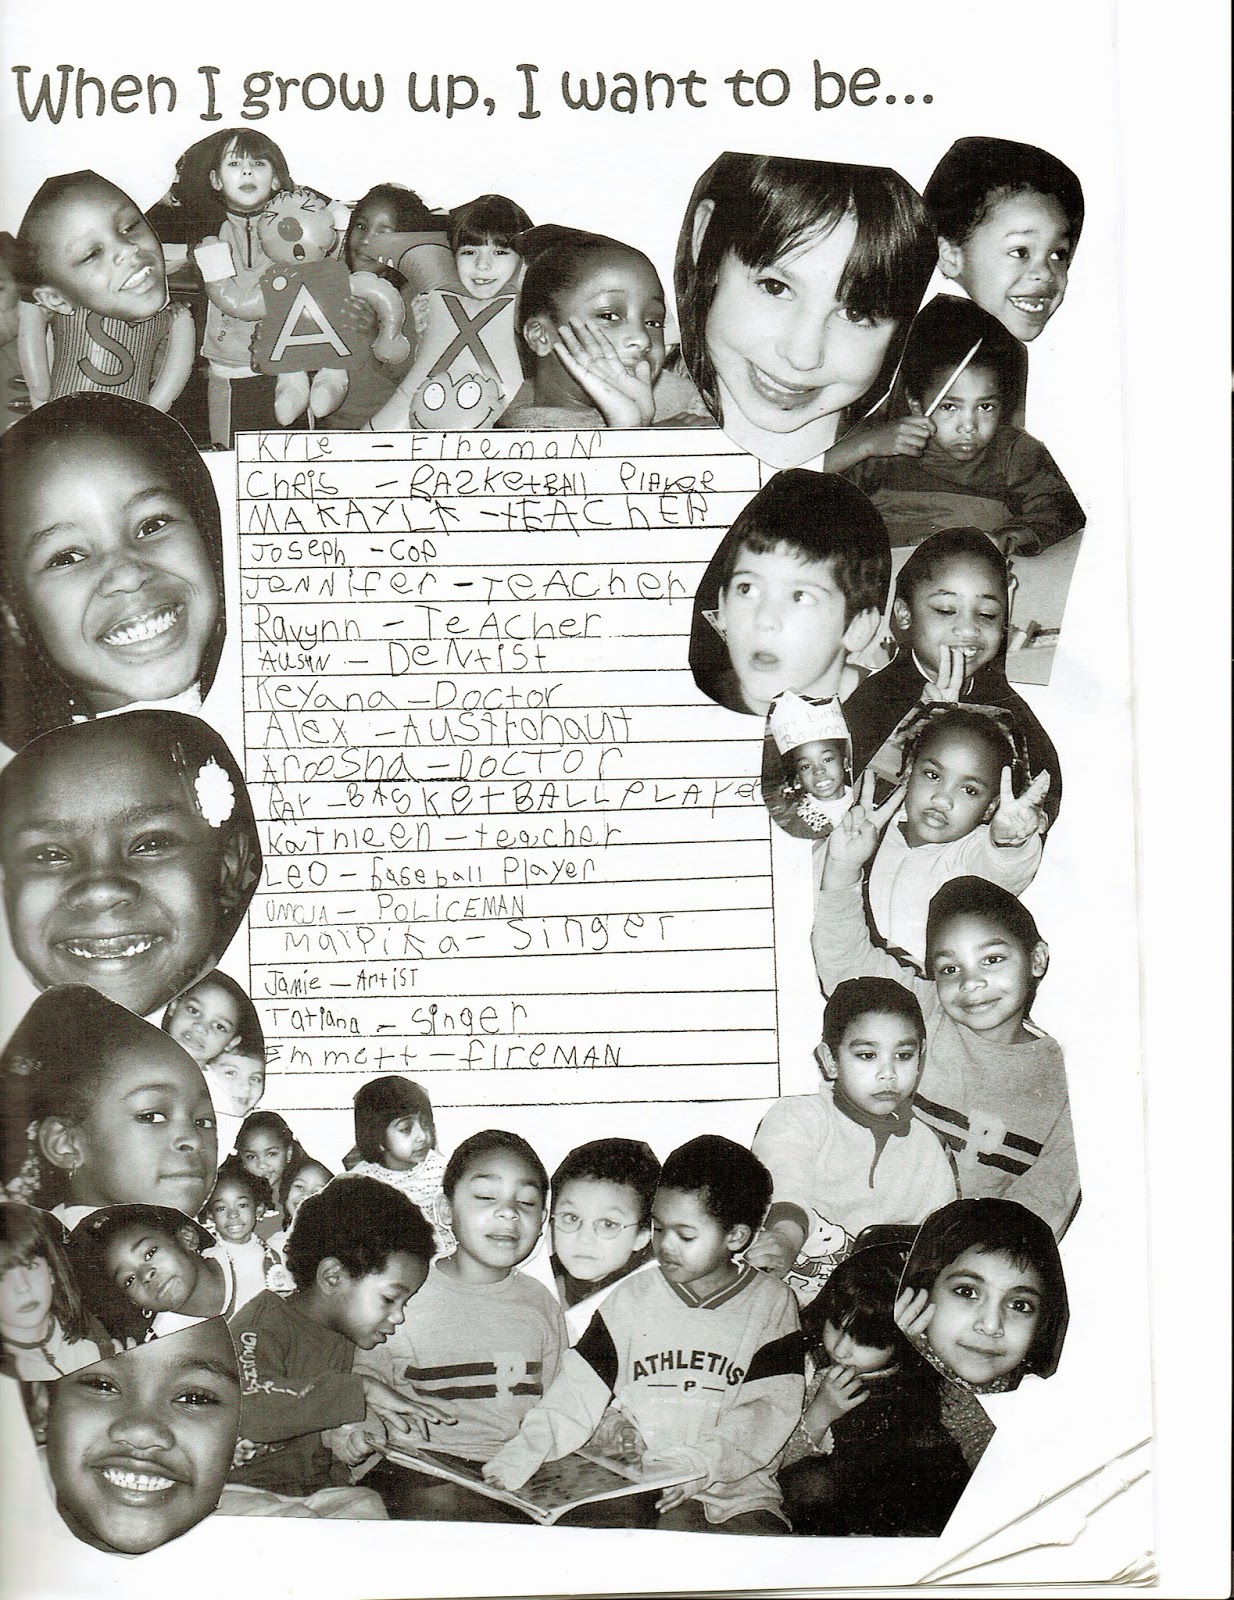 When I grow up, I want to be...
S A X
Kyle - Fireman
Chris - BAZKetBAll Player
MAKAYLA - tEACHER
Joseph - Cop
Jennifer - TeACher
Ravynn - TeACher
Austin - Dentist
Keyana - Doctor
Alex - AUSttonaut
Aroosha - DOCTOR
Ray - BASKetBALLPLAYer
Kathleen - teacher
LEO - baseball Player
UMOJA - POLICEMAN
Singer
Jamie - Artist
Tatiana - Singer
Emmett - fIREMAN
Ravynn
ATHLETICS
P